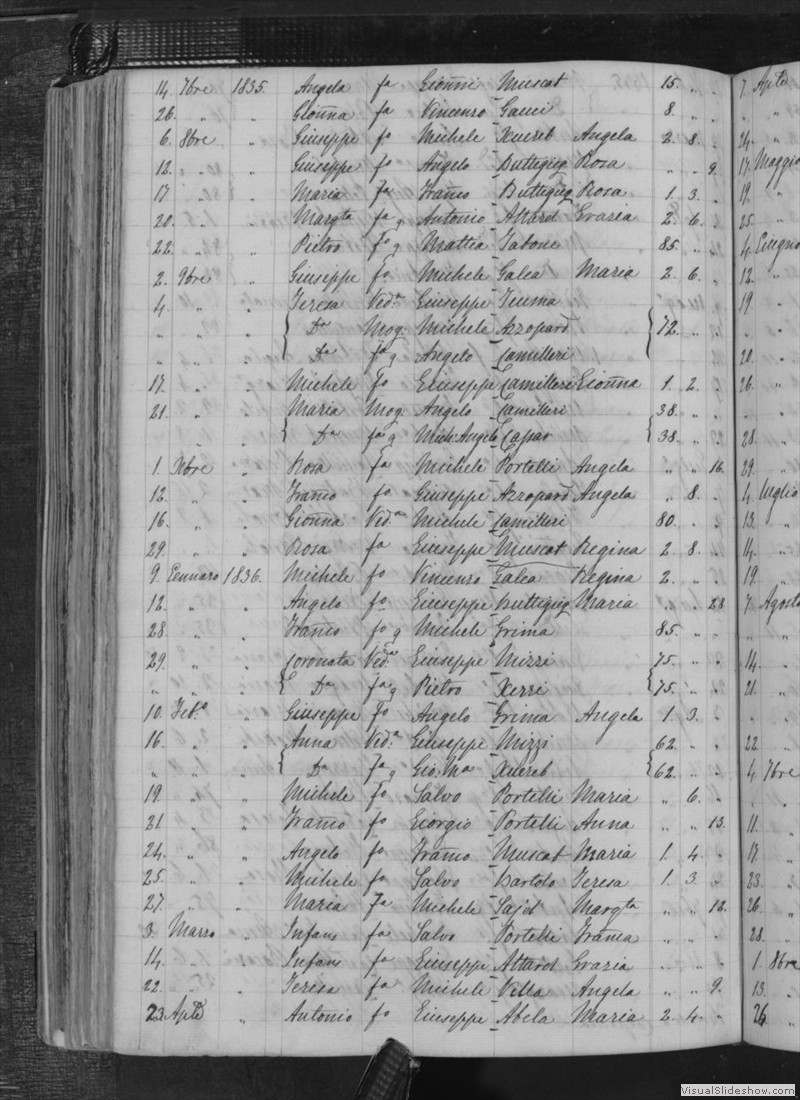 14. 7bre 1835. Angela fa Gioñni Muscat 15. „ „ 7. Aple
26. „ „ Gioñna fa Vincenzo Gauci 8. „ „ „ „
6. 8bre „ Giuseppe fo Michele Xuereb Angela 2. 8. „ 24. „
12. „ „ Giuseppe fo Angelo Buttigieg Rosa „ „ 9. 17. Maggio
17 „ „ Maria fa Franco Buttigieg Rosa 1. 3. „ 19. „
20. „ „ Margta fa q Antonio Attard Grazia 2. 6. „ 25. „
22. „ „ Pietro fo q Mattia Tabone 85. „ „ 4. Giugno
2. 9bre „ Giuseppe fo Michele Galea Maria 2. 6. „ 12. „
4. „ „ Teresa Veda Giuseppe Teuma 19. „
„ „ „ Da Mog: Michele Azzopard 72. „ „ „ „
„ „ „ Da fa q Angelo Camilleri 20. „
17. „ „ Michele fo Giuseppe Camilleri Gioñna 1. 2. „ 26. „
21. „ „ Maria Mog: Angelo Camilleri 38. „ „ „ „
„ „ Da fa q Mich: Angelo Caspar 38. „ „ 28. „
1. Xbre „ Rosa fa Michele Portelli Angela „ „ 16. 29. „
12. „ „ Franco fo Giuseppe Azzopard Angela „ 8. „ 4. Luglio
16. „ „ Gioñna Veda Michele Camilleri 80. „ „ 13. „
29. „ „ Rosa fa Giuseppe Muscat Regina 2. 8. „ 14. „
9. Gennaro 1836. Michele fo Vincenzo Galea Regina 2. „ „ 19. „
12. „ „ Angelo fo Giuseppe Buttigieg Maria „ „ 28. 7. Agosto
28. „ „ Franco fo q Michele Grima 85. „ „ „ „
29. „ „ Coronata Veda Giuseppe Mizzi 75. „ „ 14. „
„ „ „ Da fa q Pietro Xerri 75. „ „ 21. „
10. Febo „ Giuseppe fo Angelo Grima Angela 1. 3. „ „ „
16. „ „ Anna Veda Giuseppe Mizzi 62. „ „ 22. „
„ „ „ Da fa q Gio: Ma Xuereb 62. „ „ 4. 7bre
19. „ „ Michele fo Salvo Portelli Maria „ 6. „ „ „
21. „ „ Franco fo Giorgio Portelli Anna „ „ 13. 11. „
24. „ „ Angelo fo Franco Muscat Maria 1. 4. „ 17. „
25. „ „ Michele fo Salvo Bartolo Teresa 1. 3. „ 23. „
27. „ „ Maria fa Michele Sajd Margta „ „ 12. 26. „
3. Marzo „ Infans fa Salvo Portelli Franca „ „ „ 28. „
14. „ „ Infans fa Giuseppe Attard Grazia „ „ „ 1. 8bre
22. „ „ Teresa fa Michele Vella Angela „ „ 9. 13. „
23. Aple „ Antonio fo Giuseppe Abela Maria 2. 4. „ 26. „
VisualSlideshow.com